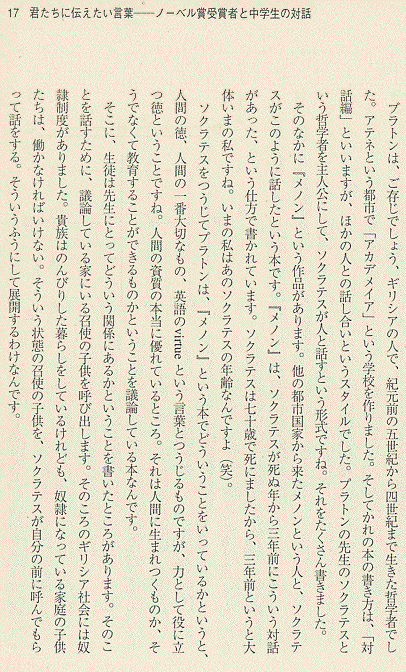 17　君たちに伝えたい言葉――ノーベル賞受賞者と中学生の対話
プラトンは、ご存じでしょう、ギリシアの人で、紀元前の五世紀から四世紀まで生きた哲学者でし
た。アテネという都市で「アカデメイア」という学校を作りました。そしてかれの本の書き方は、「対
話編」といいますが、ほかの人との話し合いというスタイルでした。プラトンの先生のソクラテスと
いう哲学者を主人公にして、ソクラテスが人と話すという形式ですね。それをたくさん書きました。
そのなかに『メノン』という作品があります。他の都市国家から来たメノンという人と、ソクラテ
スがこのように話したという本です。『メノン』は、ソクラテスが死ぬ年から三年前にこういう対話
があった、という仕方で書かれています。ソクラテスは七十歳で死にましたから、三年前というと大
体いまの私ですね。いまの私はあのソクラテスの年齢なんですよ（笑）。
ソクラテスをつうじてプラトンは、『メノン』という本でどういうことをいっているかというと、
人間の徳、人間の一番大切なもの、英語の virtue という言葉とつうじるものですが、力として役に立
つ徳ということですね。人間の資質の本当に優れているところ。それは人間に生まれつくものか、そ
うでなくて教育することができるものかということを議論している本なんです。
そこに、生徒は先生にとってどういう関係にあるかということを書いたところがあります。そのこ
とを話すために、議論している家にいる召使の子供を呼び出します。そのころのギリシア社会には奴
隷制度がありました。貴族はのんびりした暮らしをしているけれども、奴隷になっている家庭の子供
たちは、働かなければいけない。そういう状態の召使の子供を、ソクラテスが自分の前に呼んでもら
って話をする。そういうふうにして展開するわけなんです。